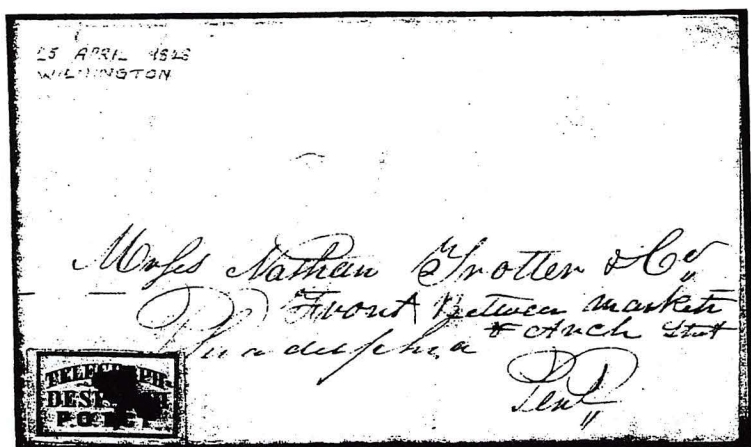 25 APRIL
WILMINGTON
Messs Nathan Trotter & Co
Front Between market
& Arch Street
Philadelphia
Pen
TELEGRAPH
DESPATCH
P.O.